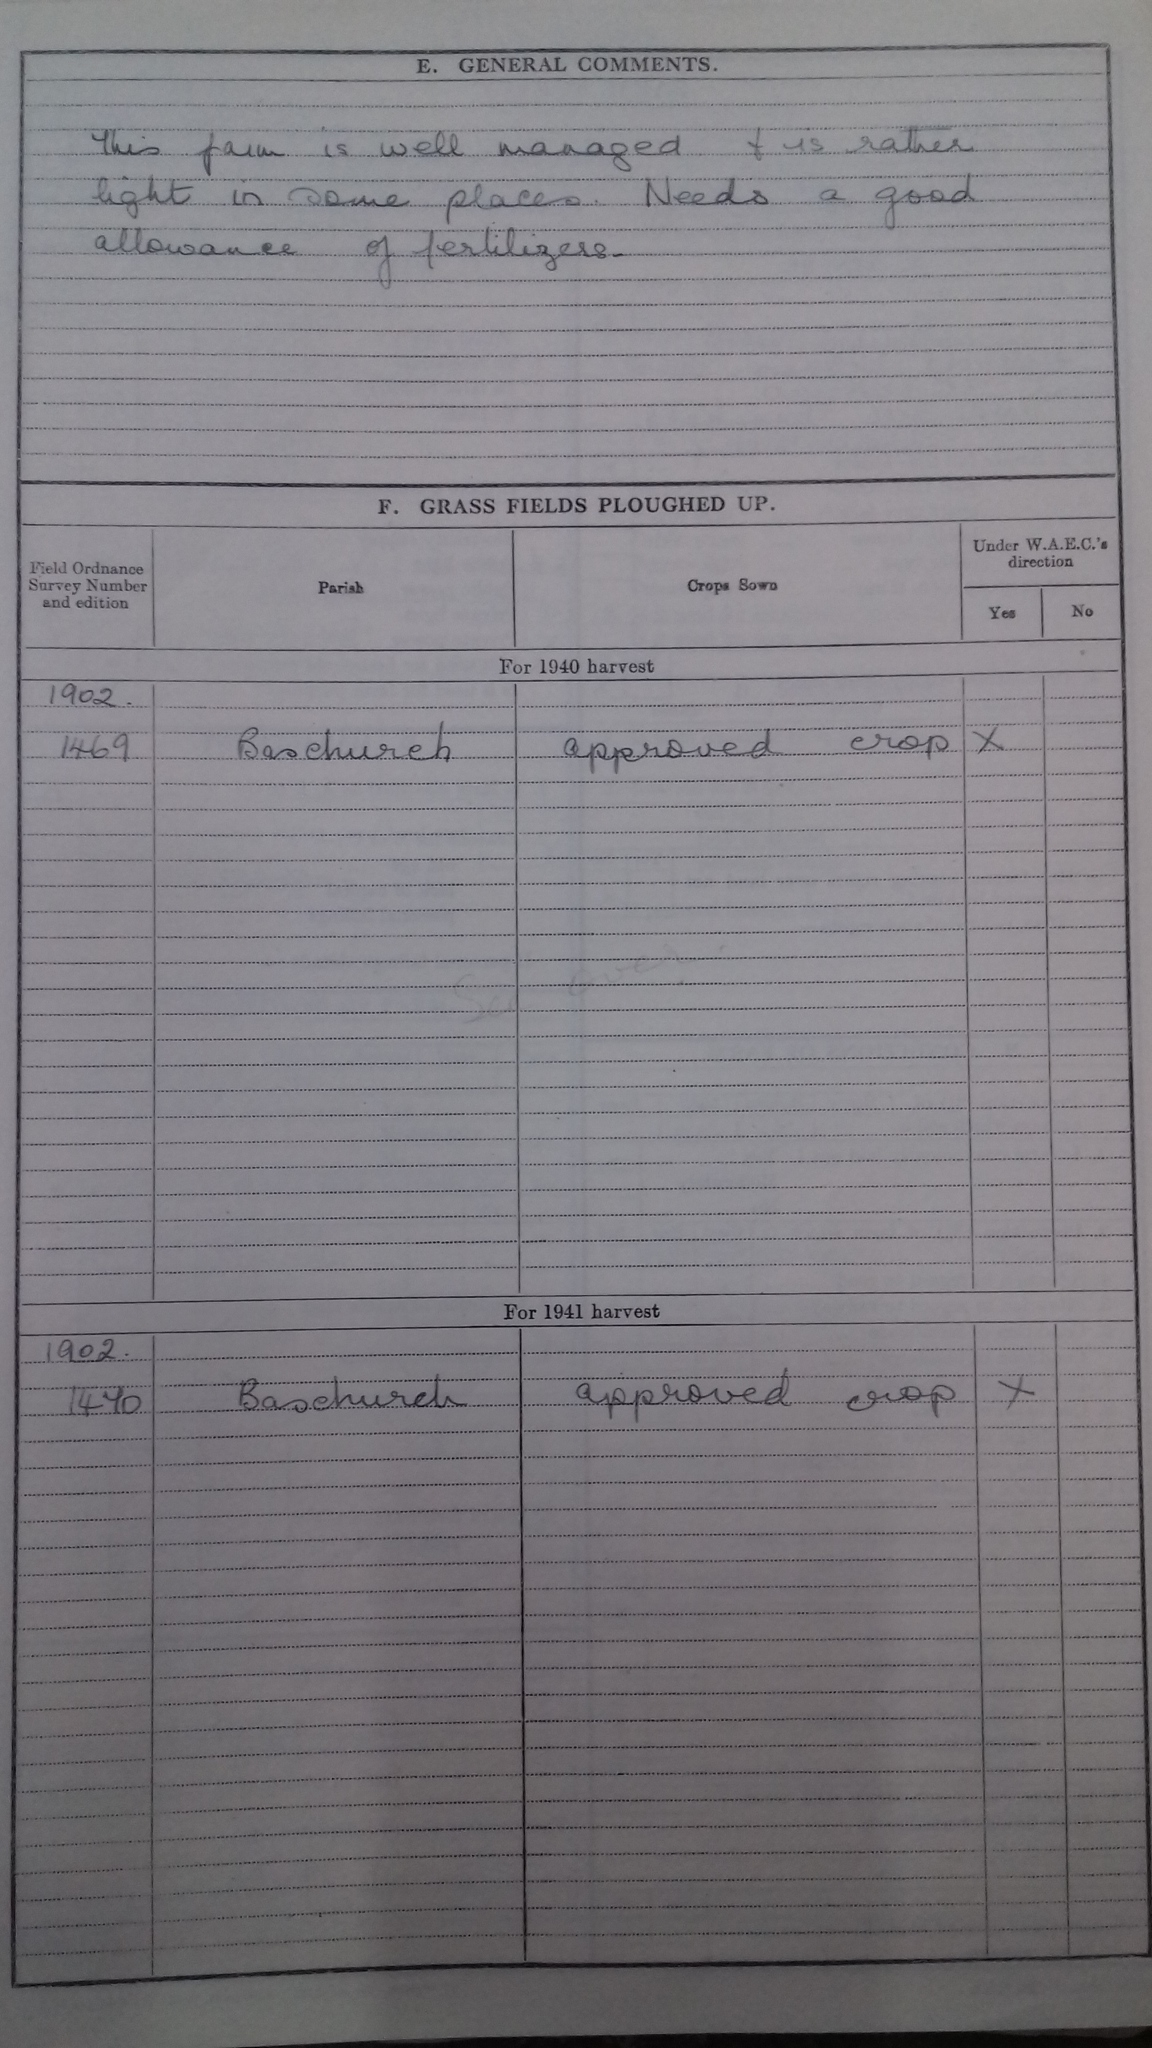 E. GENERAL COMMENTS.
This farm is well managed & is rather
light in some places. Needs a good
allowance of fertilizers.
F. GRASS FIELDS PLOUGHED UP.
Field Ordnance
Survey Number
and edition
Parish
Crops Sown
Under W.A.E.C.'s
direction
Yes
No
For 1940 harvest
1902.
1469 Baschurch approved crop X
See over.
For 1941 harvest
1902.
1470 Baschurch approved crop X